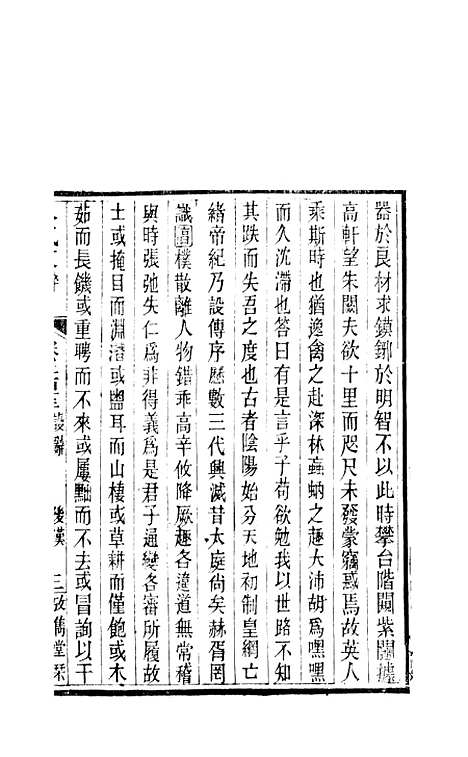 器於良材求鏌鋣於明智不以此時攀台階闚紫闥據
高軒望朱闕夫欲千里而咫尺未發蒙竊惑焉故英人
乘斯時也猶逸禽之赴深林蝱蚋之趣大沛胡爲嘿嘿
而久沈滯也答曰有是言乎子苟欲勉我以世路不知
其跌而失吾之度也古者陰陽始分天地初制皇綱亡
緒帝紀乃設傳序歷數三代興滅昔大庭尙矣赫胥罔
識淳樸散離人物錯乖高辛攸降厥趣各違道無常稽
與時張弛失仁爲非得義爲是君子通變各審所履故
士或掩目而淵潛或盥耳而山棲或草耕而僅飽或木
茹而長饑或重聘而不來或屢黜而不去或冒訽以干
後漢 三 攷儁堂栞